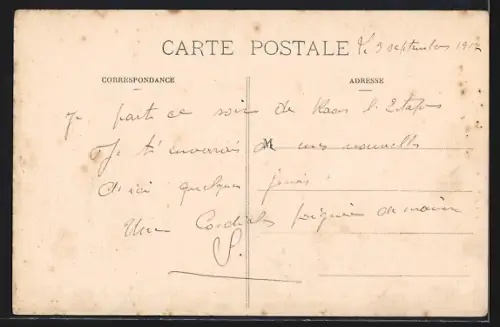 CARTE POSTALE
le 3 septembre 1912
CORRESPONDANCE
ADRESSE
Je parts ce soir de Kaons l'Etapis
M
Je t'enverrai de mes nouvelles
d'ici quelques jours.
Une Cordiale poignée de main
S.